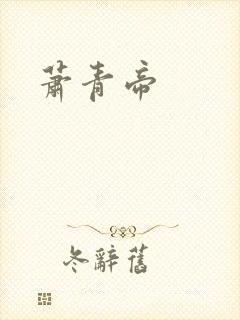 蕭青帝
冬辭舊